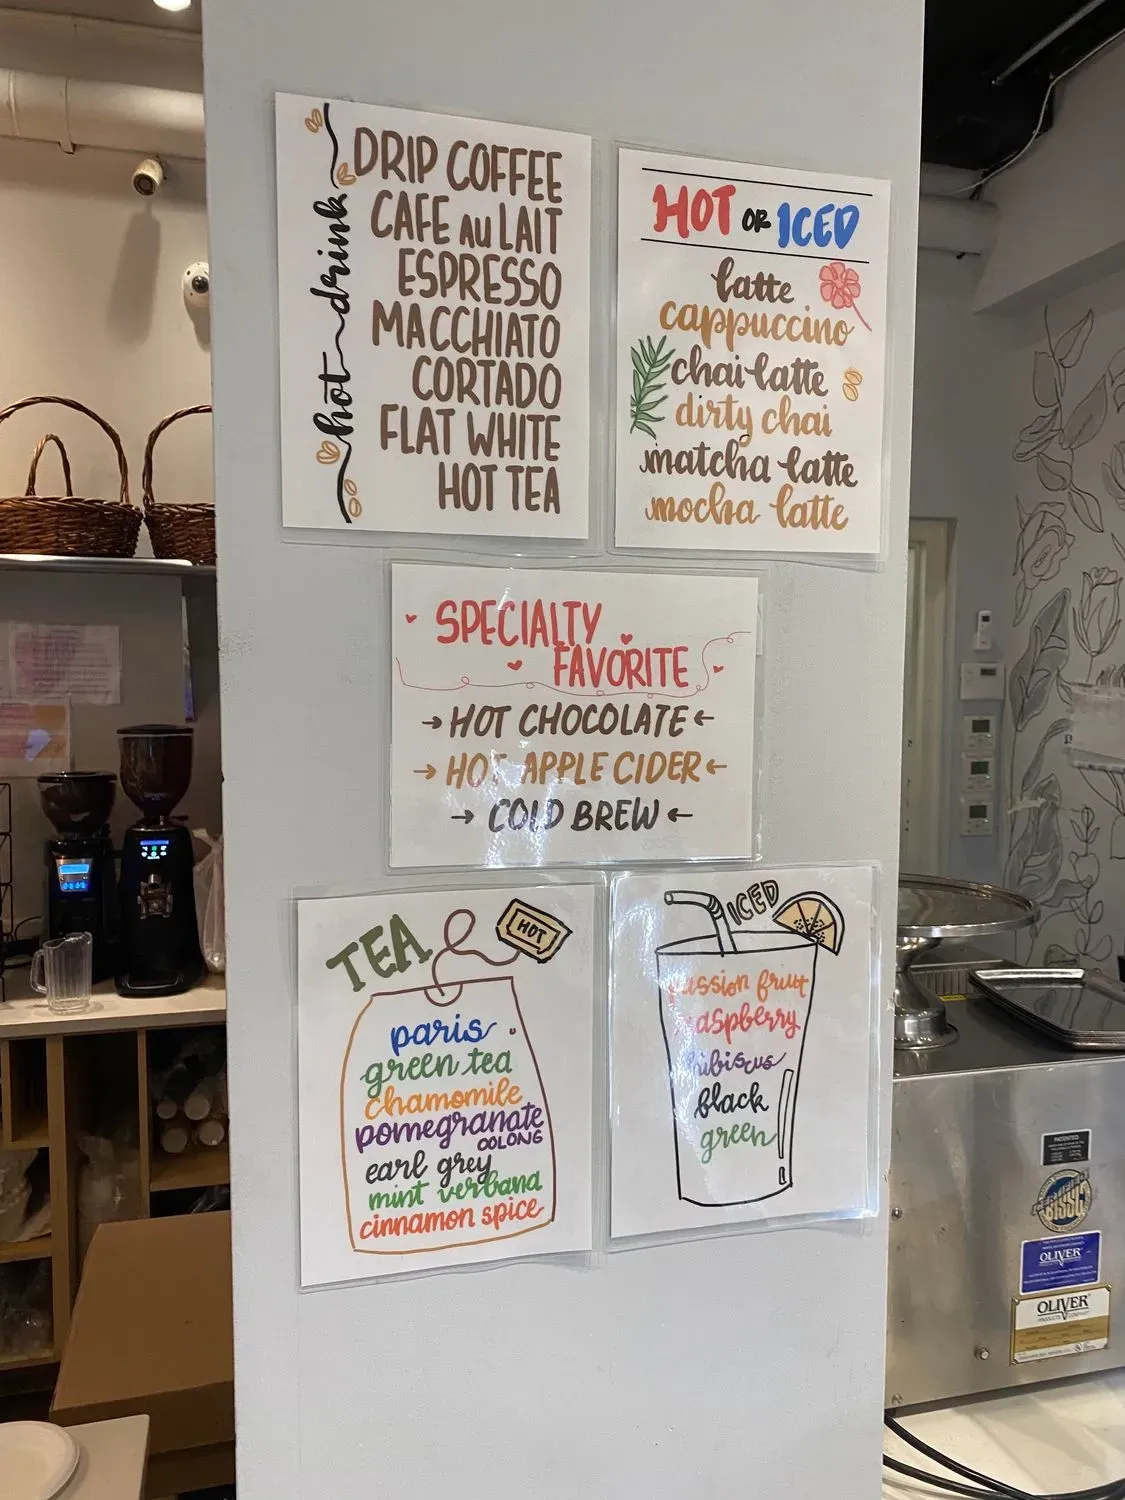 hot drink
DRIP COFFEE
CAFE AU LAIT
ESPRESSO
MACCHIATO
CORTADO
FLAT WHITE
HOT TEA
HOT OR ICED
latte
cappuccino
chai latte
dirty chai
matcha latte
mocha latte
SPECIALTY
FAVORITE
HOT CHOCOLATE
HOT APPLE CIDER
COLD BREW
TEA
HOT
paris
green tea
chamomile
pomegranate
OOLONG
earl grey
mint verbana
cinnamon spice
ICED
passion friut
raspberry
hibiscus
black
green
PATENTED
BISSC
OLIVER
OLIVER
PRODUCTS COMPANY